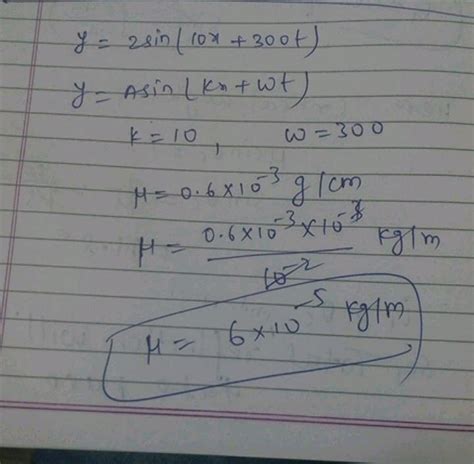 y = 2sin(10x + 300t)
y = Asin(Kx + Wt)
K = 10 , W = 300
μ = 0.6×10⁻³ g/cm
μ = 0.6×10⁻³×10⁻³ / 10⁻² kg/m
μ = 6×10⁻⁵ kg/m